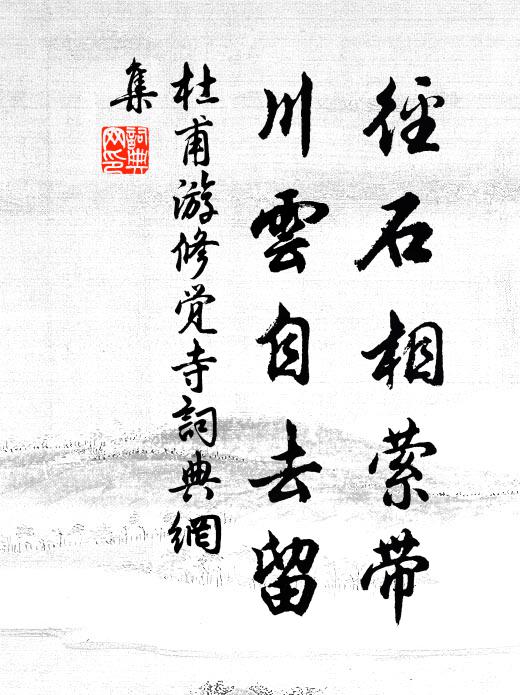 径石相萦带
川雲自去留
杜甫游修觉寺詞典網
集
詞典
网印